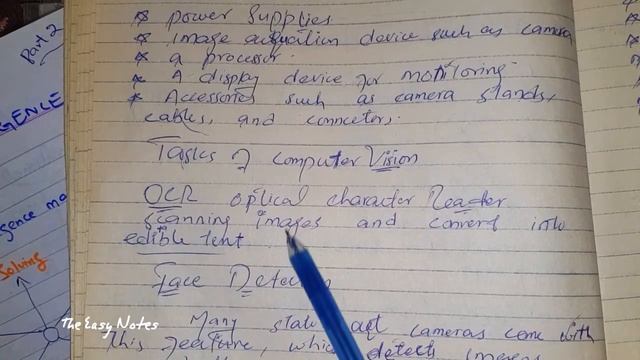 * power supplies
* image aquation device such as camera
* a processor.
* A display device for monitoring.
* Accessories such as camera stands,
cables, and conncters.
Tasks of computer Vision
OCR optical character Reader
scanning images and convert into
edible text
Face Detection
Many state art cameras come with
This feature, which detect
Part 2
GENCE
gence ma
Solving
The Easy Notes